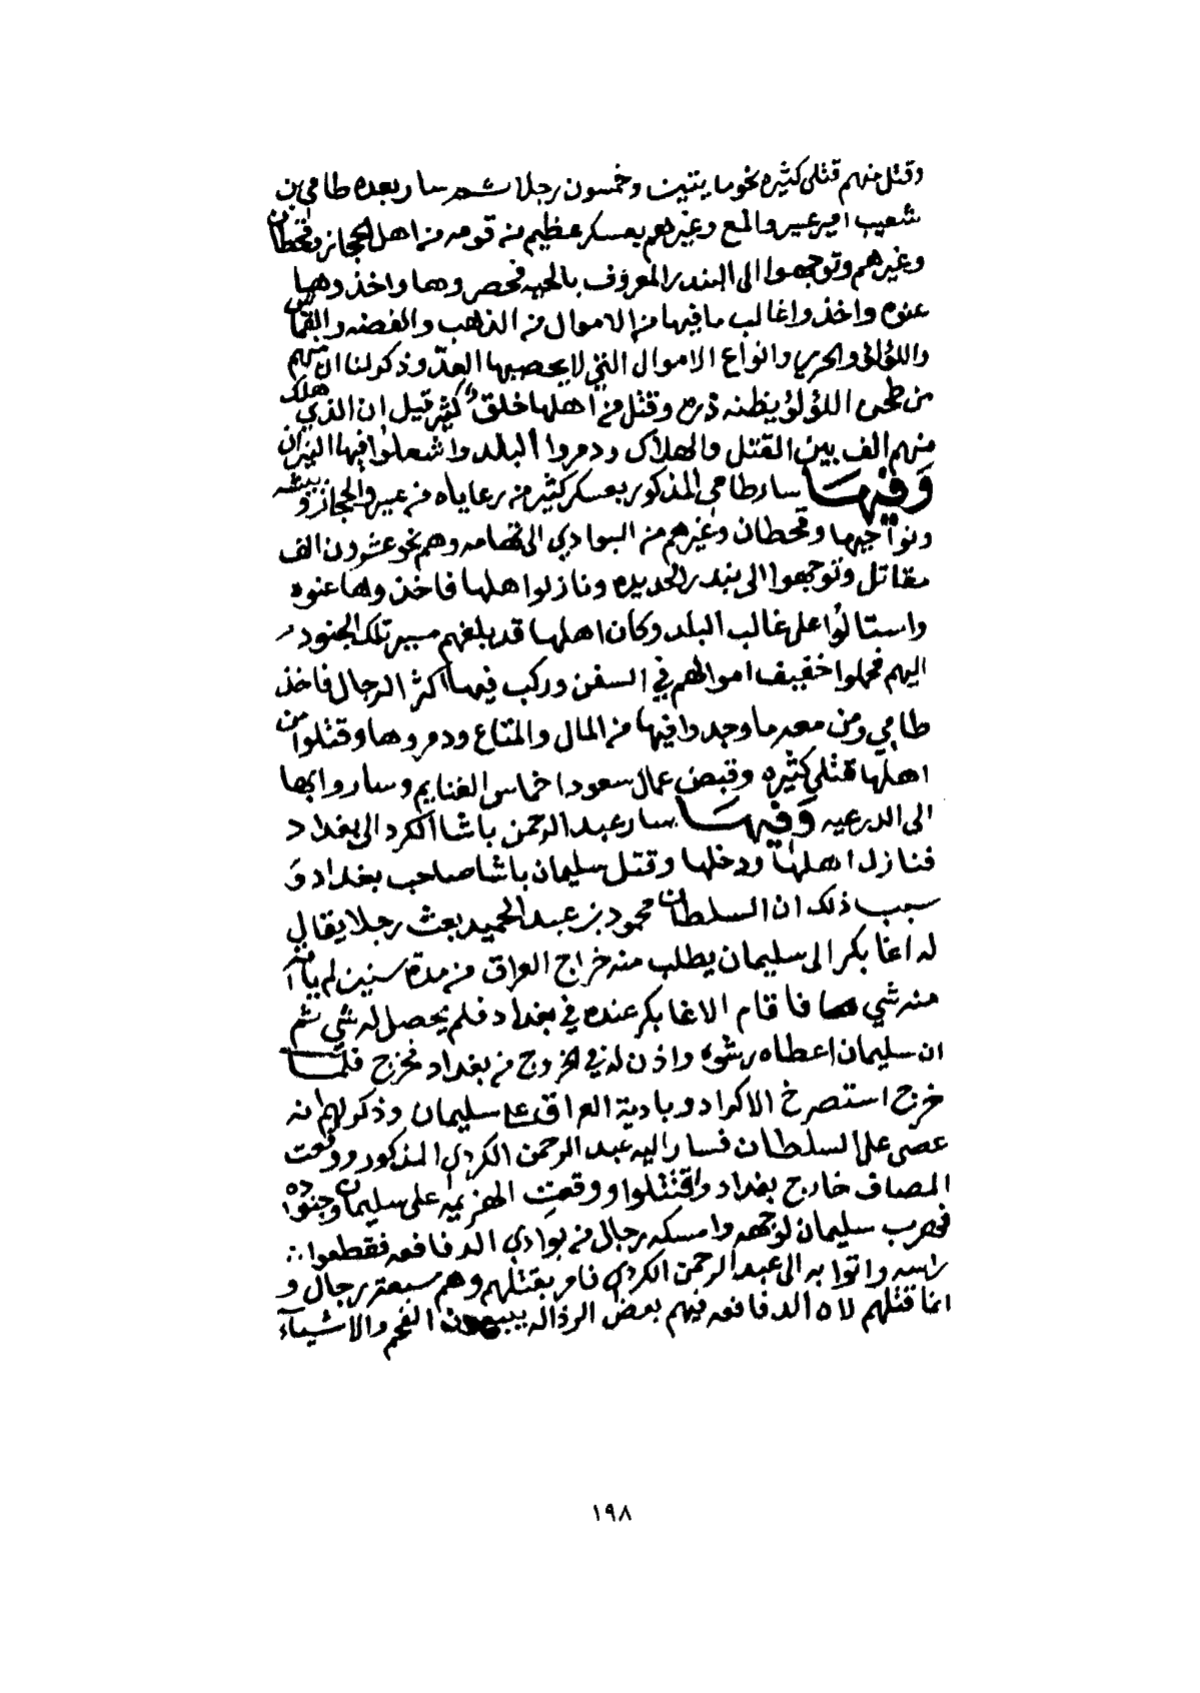 وقتل منهم قتلى كثيره نحو مايتين وخمسون رجلا ثم سار بعده طامي بن
شعيب امير عسير والمع وغيرهم بعسكر عظيم من قومه من اهل الحجاز وقحطان
وغيرهم وتوجهوا الى البندر المعروف بالحيه فحصروها واخذوها
عنوه واخذوا غالب ما فيها من الاموال من الذهب والفضه والقماش
واللؤلؤ والحرير وانواع الاموال التي لا يحصيها العدّ وذكر لنا ان منهم
من طحن اللؤلؤ يظنه ذره وقتل من اهلها خلق كثير قيل ان الذي هلك
منهم الف بين القتل والهلاك ودمروا البلد واشعلوا فيها النيران
وَفيهَا سار طامي المذكور بعسكر كثير من رعاياه من عسير والحجاز وبيشه
ونواحيها وقحطان وغيرهم من البوادي الى تهامه وهم نحو عشرون الف
مقاتل وتوجهوا الى بندر الحديده ونازلوا اهلها فاخذوها عنوه
واستالوا على غالب البلد وكان اهلها قد بلغهم مسير تلك الجنود
اليهم فحملوا خفيف اموالهم في السفن وركب فيها اكثر الرجال فاخذ
طامي ومن معه ما وجدوا فيها من المال والمتاع ودمروها وقتلوا من
اهلها قتلى كثيره وقبض عمال سعود اخماس الغنايم وساروا بها
الى الدرعيه وَفيهَا سار عبد الرحمن باشا الكرد الى بغداد
فنازل اهلها ودخلها وقتل سليمان باشا صاحب بغداد وَ
سبب ذلك ان السلطان محمود بن عبد الحميد بعث رجلا يقال
له اغا بكر الى سليمان يطلب منه خراج العراق من مدة سنين لم ياته
منه شي فاقام الاغا بكر عنده في بغداد فلم يحصل له شي ثم
ان سليمان اعطاه رشوه واذن له في الخروج من بغداد فخرج فلما
خرج استصرخ الاكراد وبادية العراق على سليمان وذكر لهم انه
عصى على السلطان فسار اليه عبد الرحمن الكردي المذكور ووقعت
المصاف خارج بغداد واقتتلوا ووقعت الهزيمه على سليمان وجنوده
فهرب سليمان لوجهه وامسكه رجال من بوادي الدفافعه فقطعوا
راسه واتوا به الى عبد الرحمن الكردي فامر بقتلهم وهم سبعة رجال و
انما قتلهم لان الدفافعه فيهم بعض الرذاله يبيعون الفحم والاشيآء
١٩٨